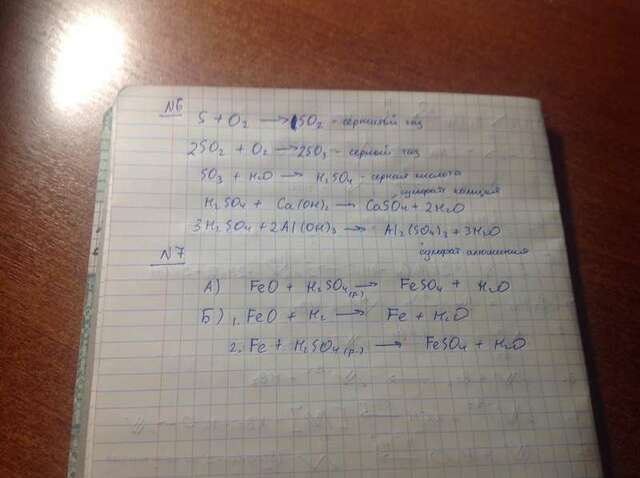 №6
S + O₂ → SO₂ - сернистый газ
2SO₂ + O₂ → 2SO₃ - серный газ
SO₃ + H₂O → H₂SO₄ - серная кислота
сульфат кальция
H₂SO₄ + Ca(OH)₂ → CaSO₄ + 2H₂O
3H₂SO₄ + 2Al(OH)₃ → Al₂(SO₄)₃ + 3H₂O
сульфат алюминия
№7
А) FeO + H₂SO₄(р.) → FeSO₄ + H₂O
Б) 1. FeO + H₂ → Fe + H₂O
2. Fe + H₂SO₄(р.) → FeSO₄ + H₂O